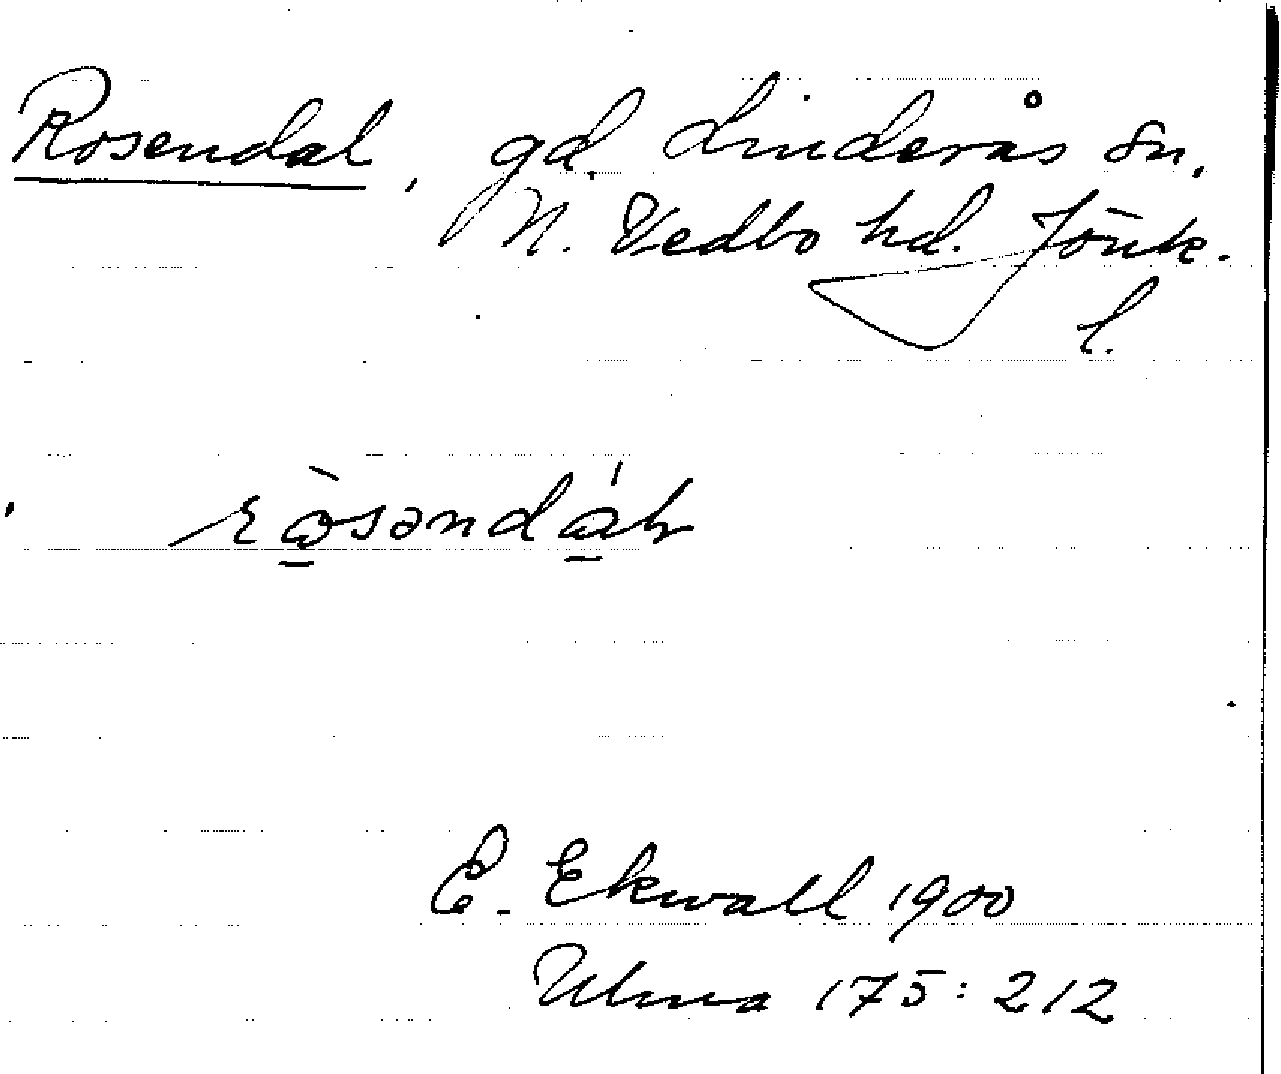 Rosendal, gd. Linderås sn.
N. Vedbo hd. Jönk.
l.
E. Ekwall 1900
Ulma 175:212